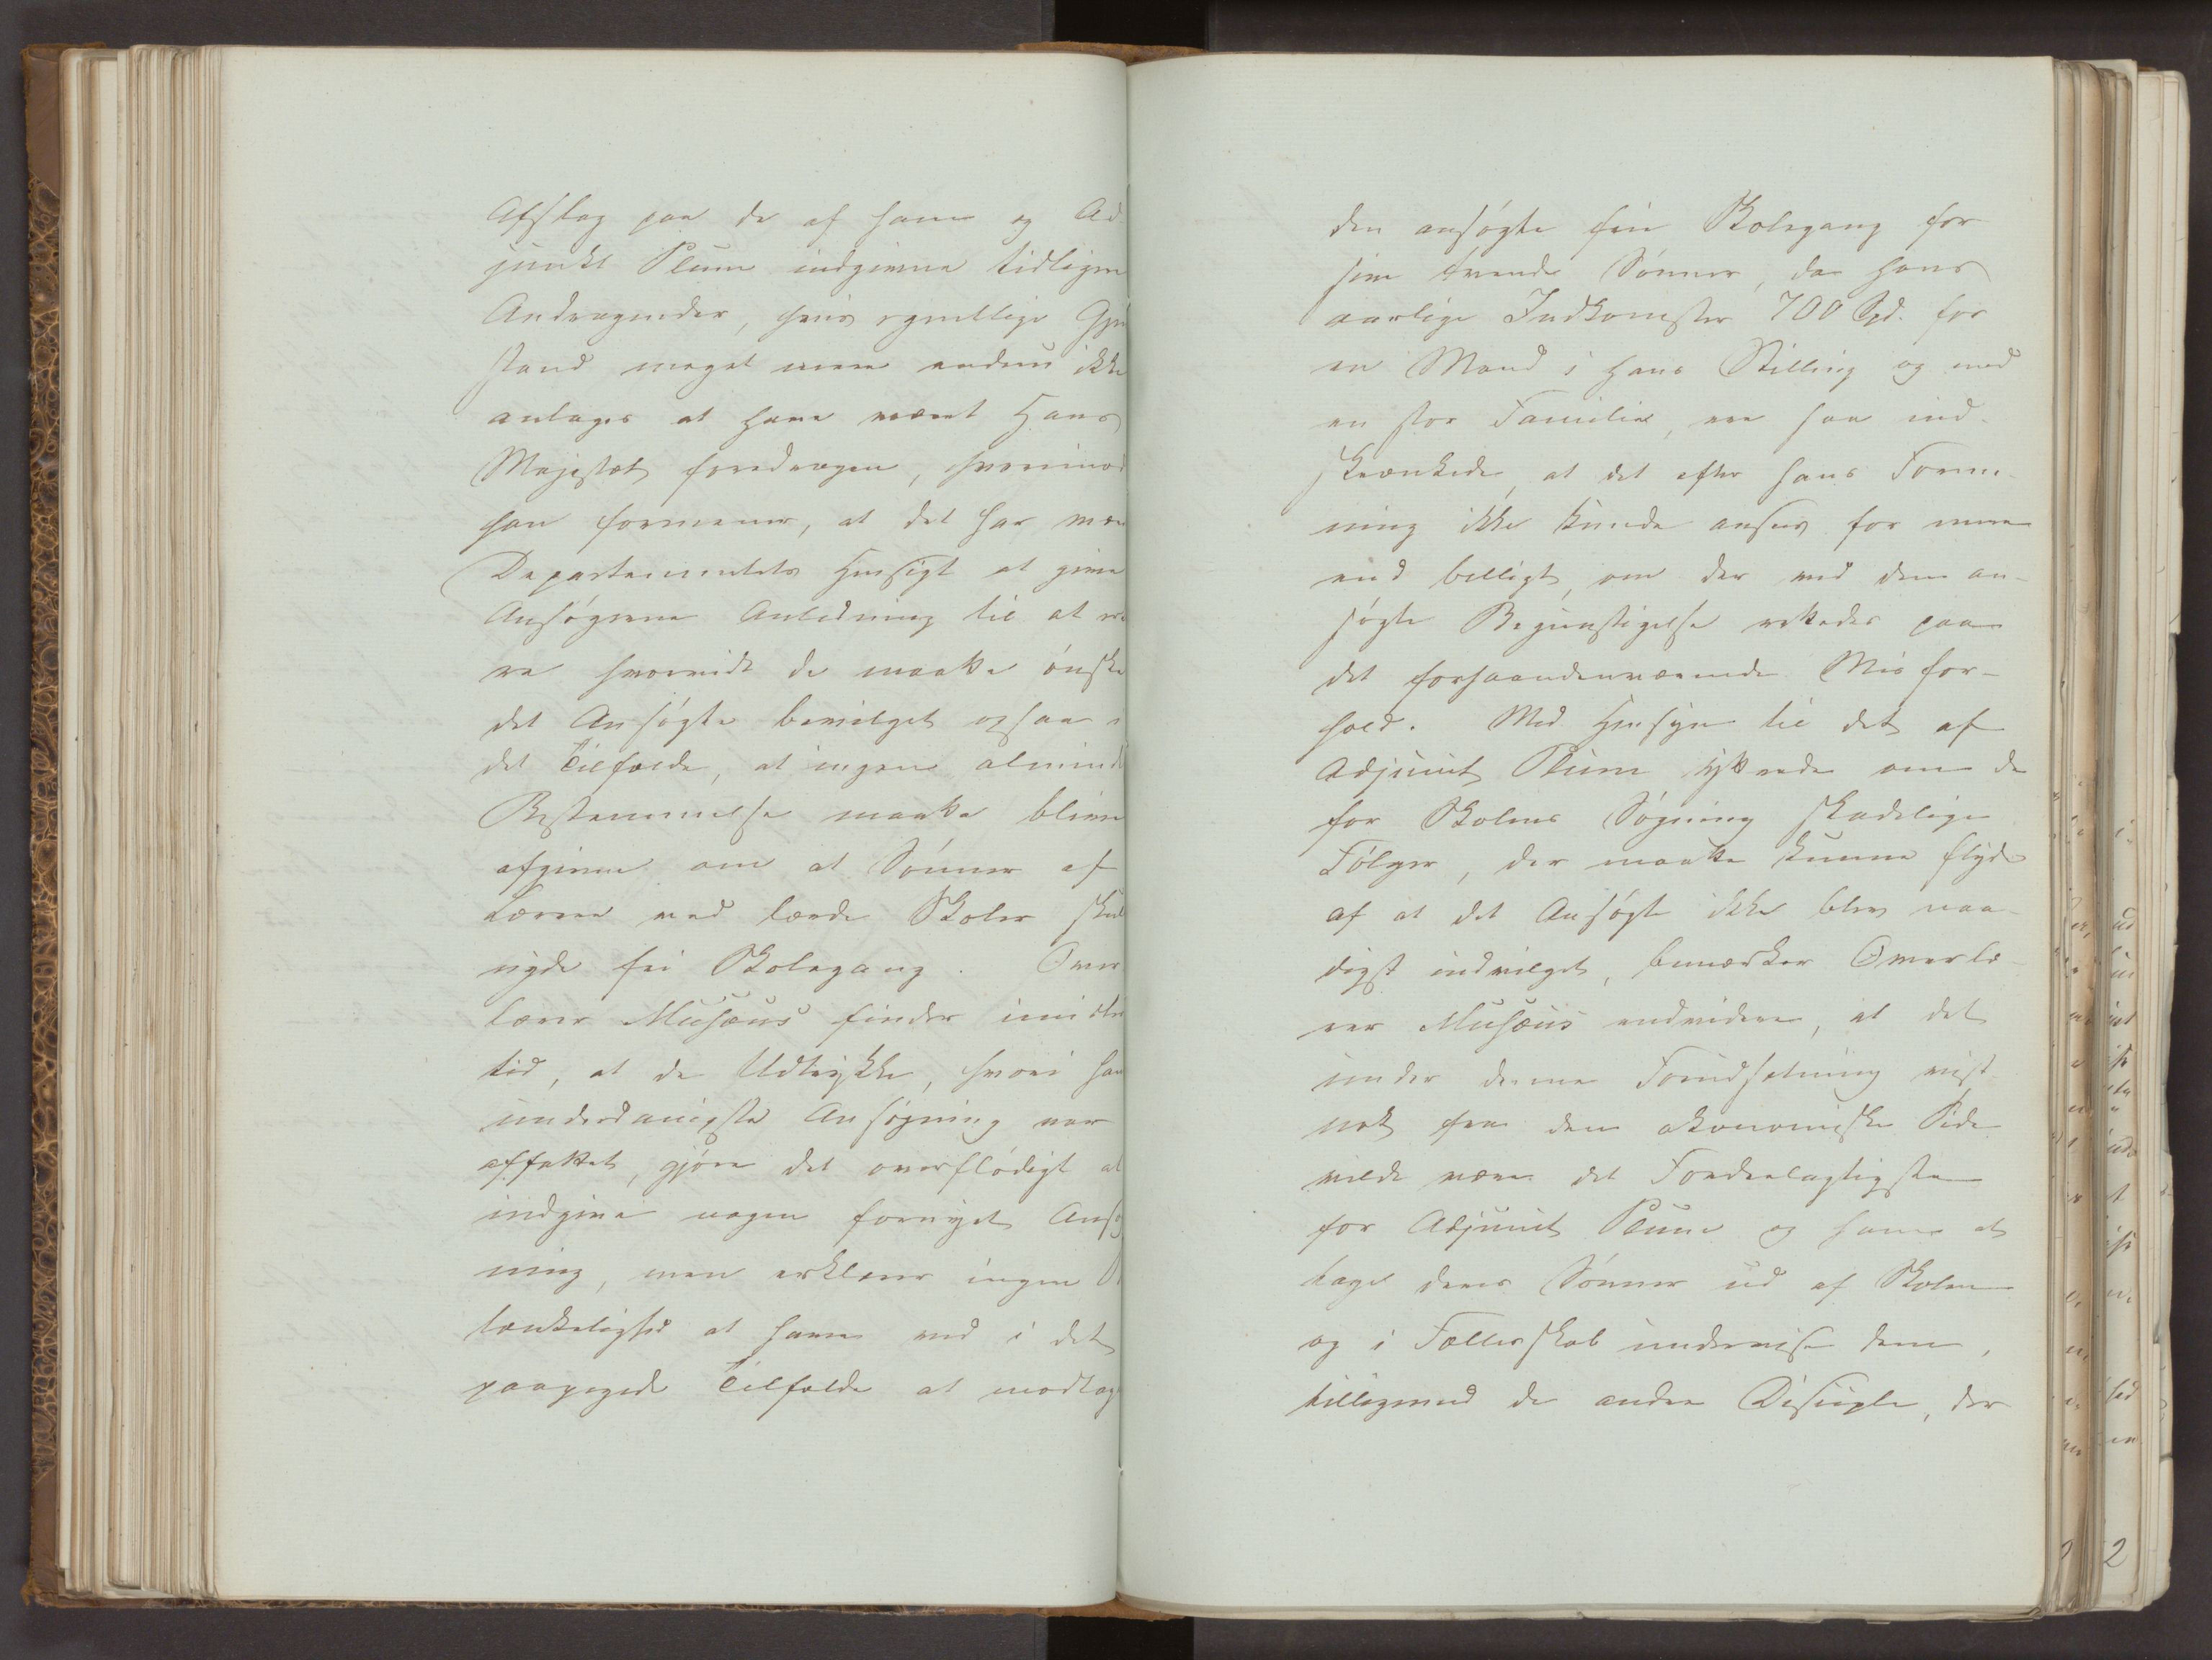 Afslag paa de af ham og Ad-
junkt Plum indgivne tidligere
Andragender, hvis egentlige Gjen
stand meget mere endnu ikke
antages at have været Hans
Majestæt foredragen, hvorimod
han formener, at det har være
Departementets Hensigt at give
Ansøgerne Anledning til at
ve hvorvidt de maatte ønske
det Ansøgte bevilget ogsaa i
det Tilfælde, at ingen almindel
Bestemmelse maatte blive
afgiven om at Sønner af
Lærere ved lærde Skoler skul
nyde fri Skolegang. Over
lærer Musæus finder imidler
tid, at de Udtrykke, hvori han
underdanigste Ansøgning var
affattet, gjøre det overflødigt at
indgive nogen fornyet Ansøg
ning, men erklærer ingen
tænkelighed at have ved i det
paapegede Tilfælde at modtage
den ansøgte frie Skolegang for
sine tvende Sønner, da hans
aarlige Indkomster 700 Spd. for
en Mand i hans Stilling og med
en stor Familie, ere saa ind-
skrænkede, at det efter hans Forme-
ning ikke kunde ansees for mere
end billigt, om der ved den an-
søgte Begunstigelse rettedes paa
det forhaandenværende Misfor-
hold. Med Hensyn til det af
Adjunct Plum yttrede om de
for Skolens Søgning skadelige
Følger, der maatte kunne flyde
af at det Ansøgte ikke blev naa-
digst indvilget, bemærker Overlæ-
rer Musæus endvidere, at det
under denne Forudsætning vist-
nok fra den økonomiske Side
vilde være det Fordeelagtigste
for Adjunct Plum og ham at
tage deres Sønner ud af Skolen
og i Fællesskab undervise dem,
tilligemed de andre Disciple, der